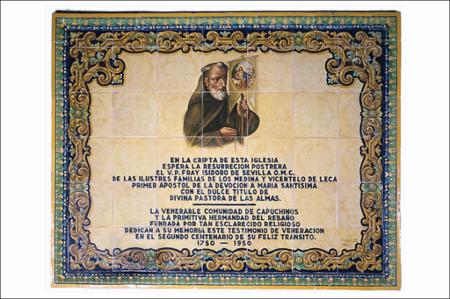 EN LA CRIPTA DE ESTA IGLESIA
ESPERA LA RESURRECION POSTRERA
EL V. P. FRAY ISIDORO DE SEVILLA O.M.C.
DE LAS ILUSTRES FAMILIAS DE LOS MEDINA Y VICENTELO DE LECA
PRIMER APOSTOL DE LA DEVOCION A MARIA SANTISIMA
CON EL DULCE TITULO DE
DIVINA PASTORA DE LAS ALMAS.
LA VENERABLE COMUNIDAD DE CAPUCHINOS
Y LA PRIMITIVA HERMANDAD DEL REBAÑO
FUNDADA POR TAN ESCLARECIDO RELIGIOSO
DEDICAN A SU MEMORIA ESTE TESTIMONIO DE VENERACION
EN EL SEGUNDO CENTENARIO DE SU FELIZ TRANSITO.
1750 — 1950